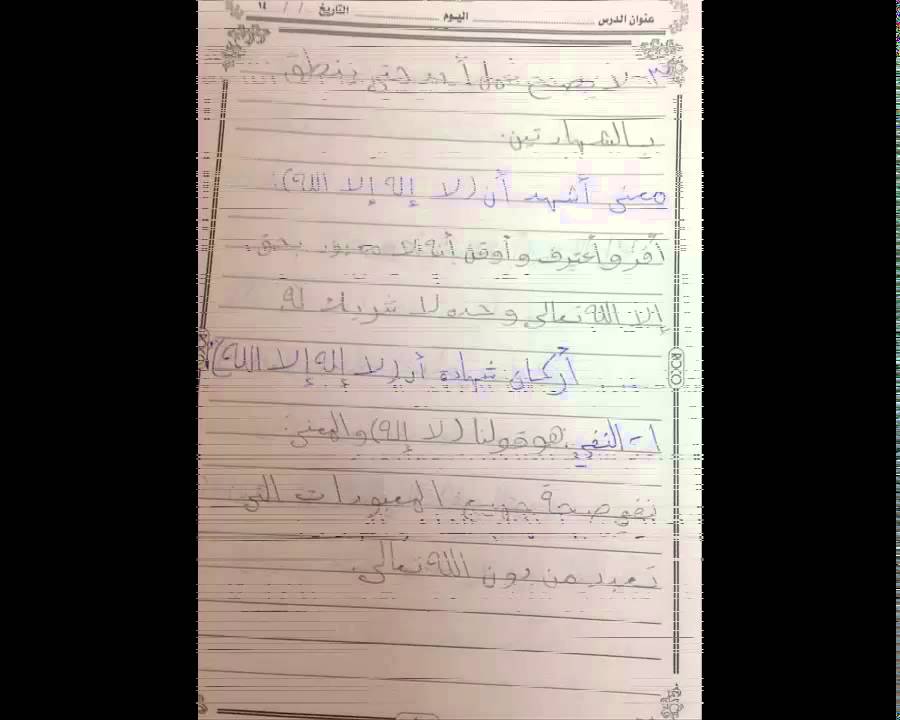 عنوان الدرس اليوم التاريخ / / ١٤
٣- لا يصح عمل أحد حتى ينطق
بالشهادتين.
معنى أشهد أن (لا إله إلا الله):
أقر وأعترف وأوقن أنه لا معبود بحق
إلا الله تعالى وحده لا شريك له
أركان شهادة أن (لا إله إلا الله):
١- النفي هو قولنا (لا إله) والمعنى:
نفي صحة جميع المعبودات التي
تعبد من دون الله تعالى.